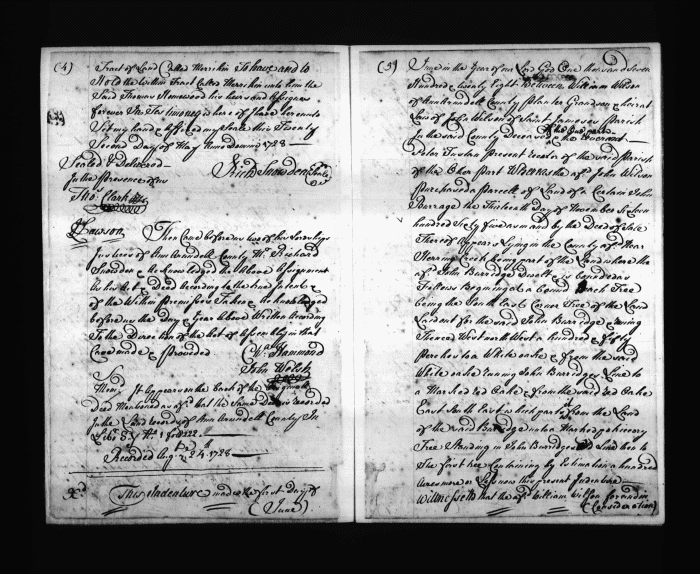 (4)
Tract of Land Called Merrikin To have and to
Hold the within Tract Called Merrikin unto him the
Said Thomas Homewood his heirs and assigns
forever In Testimony whereof I have hereunto
Set my hand & affixed my Seale this Twenty
Second Day of May Anno Domini 1728
Sealed & Delivered
In the presence of us
Rich'd Snowden Seale
Tho's Clark
Lawson
Then Came before us two of his Lordships
Justices of Ann Arundell County Mr. Richard
Snowden & Acknowledged the Above Assignment
As his Act & Deed According to the true Intent
of the Within Premises Taken & Acknowledged
before us the Day & Year Above Written According
To the Direction of the Act of Assembly in that
Case made & provided
Hammond
John Welsh
It Appears on the back of the
Deed Mentioned that the Same is recorded
In the Land records of Ann Arundell County In
Lib'r S Y N'o 1 folo 222
Recorded Aug't 24 1728
This Indenture made the first Day of
(June)
(5)
June in the Year of our Lord God One thousand Seven
Hundred twenty Eight Between William Wilson
of Annarundell County Planter Grandson & heir at
Law of John Wilson of Saint James's Parish
In the said County Deceased
Present rector of the said Parish
of the Other Part Whereas the af'd John Wilson
purchased a parcell of Land of a Certain John
Burrage the thirteenth Day of November Sixteen
hundred Sixty five as and by the Deed of Sale
Thereof Appears Lying in the County af'd near
Herring Creek being part of the Land where the
af'd John Burridge Dwelt & is bounded as
Follows Begining at a bound Beech Tree
being the South East Corner Tree of the Land
Laid out for the said John Burridge runing
Thence West north West a hundred & fifty
perches to a White oake & from the said
White oake runing John Burridges Line to
a Marked red Oake & from the said red Oake
East South East which parts from the Land
of the said Burridge unto a Marked hickory
Tree Standing in John Burridges Line then to
The first tree Containing by Estimation a hundred
Acres more or Less now this present Indenture
Witnesseth that the af'd William Wilson for and in
(Consideration)